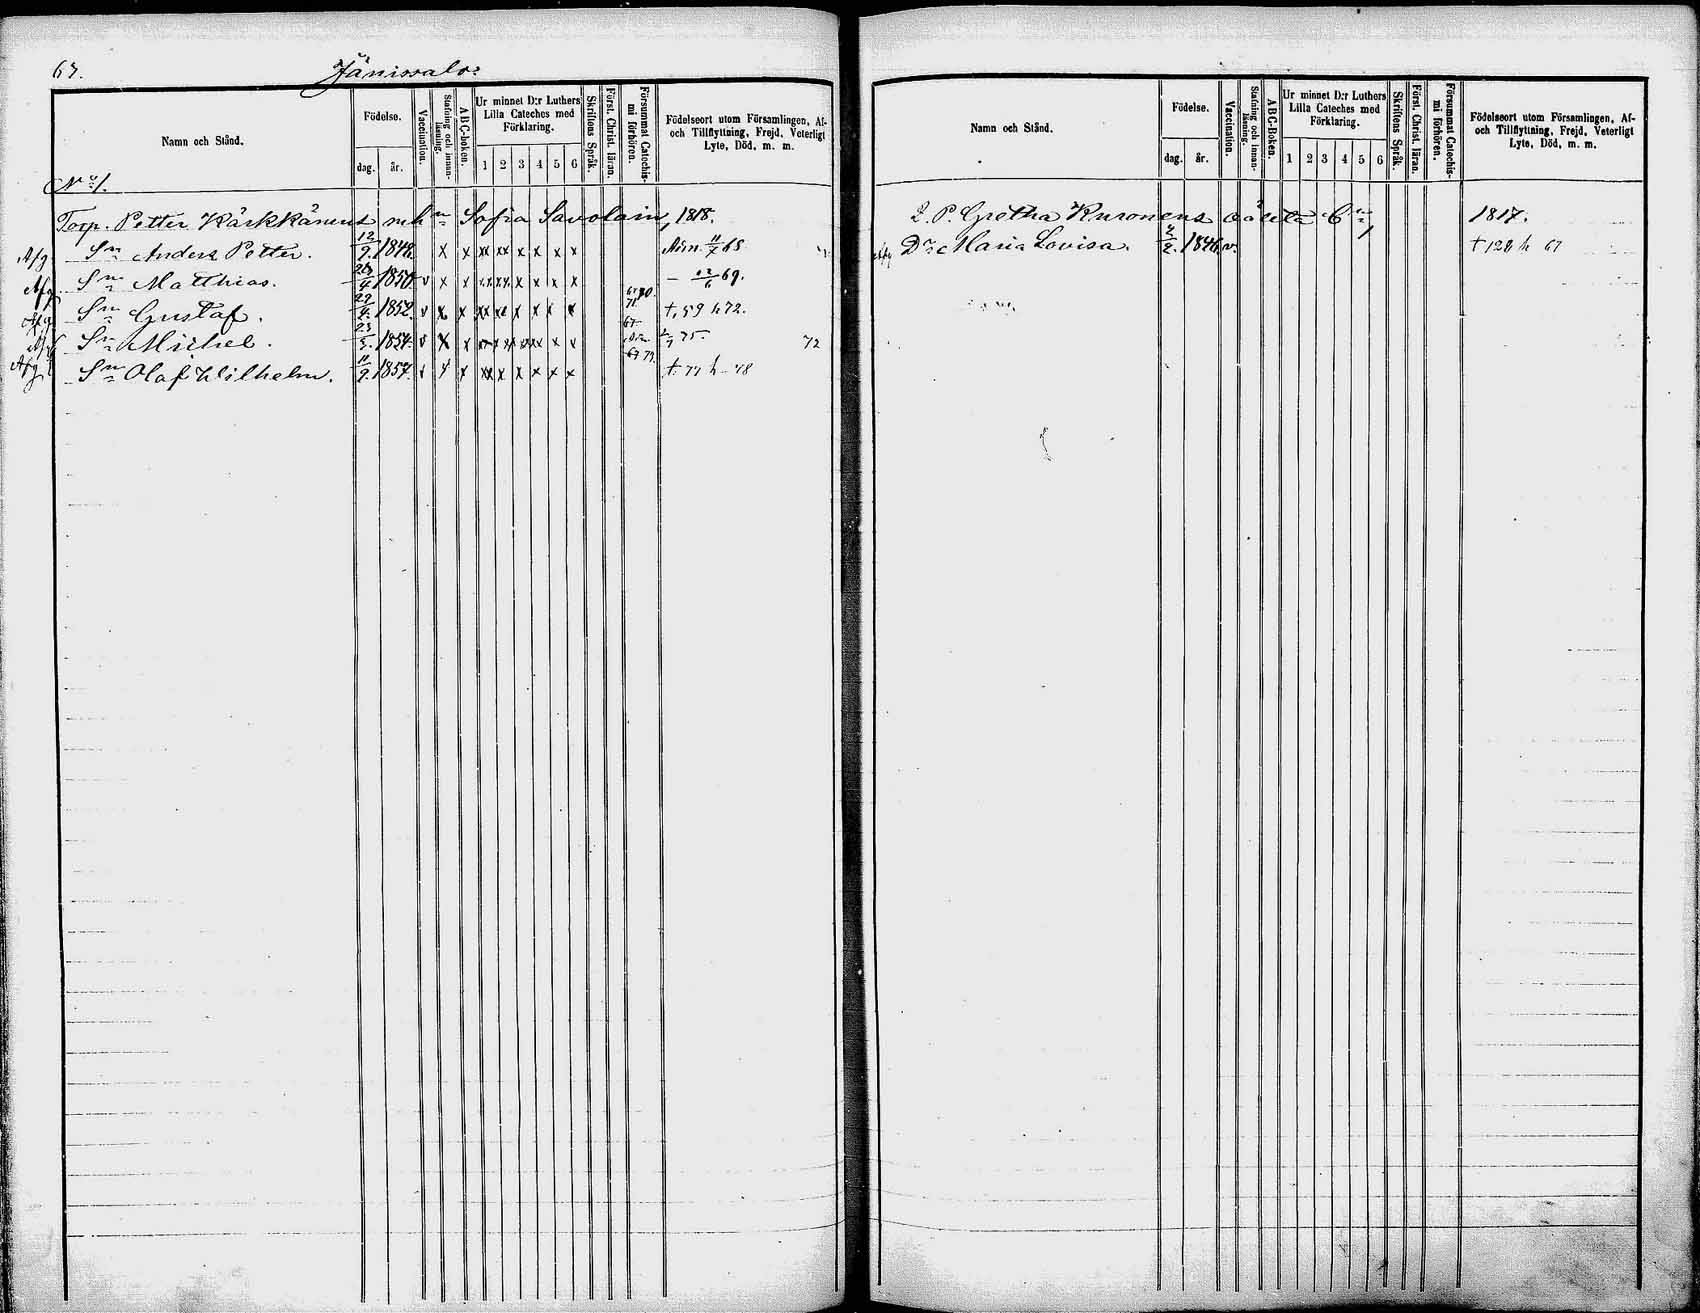 67. Jänissalo:
Namn och Stånd.
Födelse.
dag. år.
Vaccination.
Stafning och innanläsning.
ABC-Boken.
Ur minnet D:r Luthers Lilla Cateches med Förklaring.
1 2 3 4 5 6
Skriftens Språk.
Först. Christ. läran.
Försummat Catechismi förhören.
Födelseort utom Församlingen, Af- och Tillflyttning, Frejd, Veterligt Lyte, Död, m. m.
No 1.
Torp. Petter Kärkkänens mh Sofia Savolain, 1818.
Afg Sn Anders Petter. 12/9. 1848. x x xx xx x x x x 11/4 68
Afg. Sn Matthias. 1850. v x x x x x x 69.
Afg Sn Gustaf. 1852. v x x xx x x x x x 71 +, 59 h 72.
Sn Michel. 23/5. 1854. v x x 67 75. 72
Afg Sn Olaf Wilhelm. 11/9. 1857. v x x xx x x x x x 67 +. 77 h 78
Namn och Stånd.
Födelse.
dag. år.
Vaccination.
Stafning och innanläsning.
ABC-Boken.
Ur minnet D:r Luthers Lilla Cateches med Förklaring.
1 2 3 4 5 6
Skriftens Språk.
Först. Christ. läran.
Försummat Catechismi förhören.
Födelseort utom Församlingen, Af- och Tillflyttning, Frejd, Veterligt Lyte, Död, m. m.
P. Gretha Kuronens 1817.
Dr Maria Lovisa. 1846. v. + 128 h 67